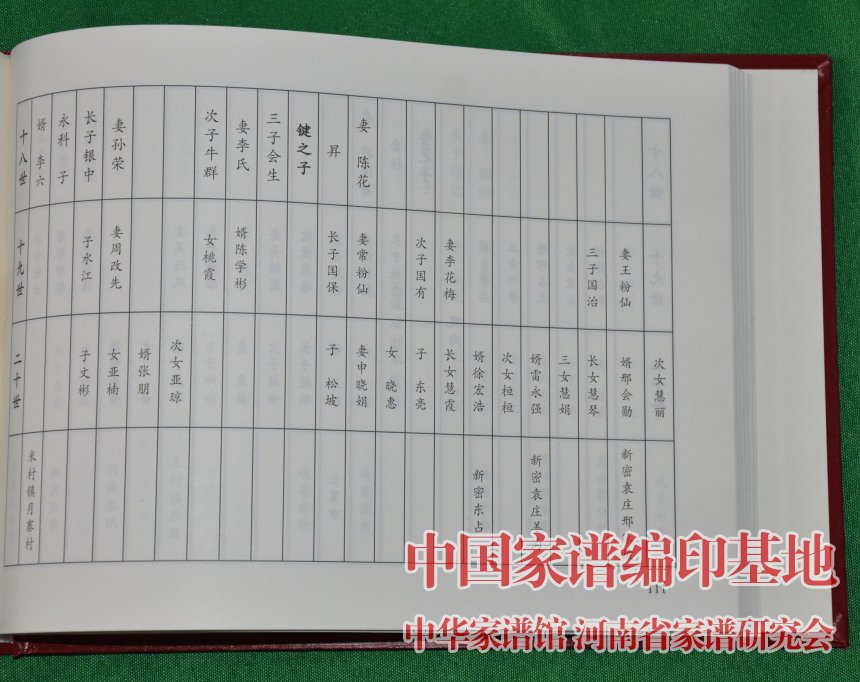 十八世
婿 李六
永科 子
长子银中
妻孙荣
次子牛群
妻李氏
三子会生
键之子
昇
妻 陈花
十九世
子水江
妻周改先
女桃霞
婿陈学彬
长子国保
妻常粉仙
次子国有
妻李花梅
三子国治
妻王粉仙
二十世
子文彬
女亚楠
婿张朋
次女亚琼
子 松坡
妻申晓娟
女 晓惠
子 东亮
长女慧霞
婿徐宏浩
次女桓桓
婿雷永强
三女慧娟
长女慧琴
婿邢会勋
次女慧丽
米村镇月寨村
新密东占
新密袁庄
新密袁庄邢
111
中国家谱编印基地
中华家谱馆 河南省家谱研究会